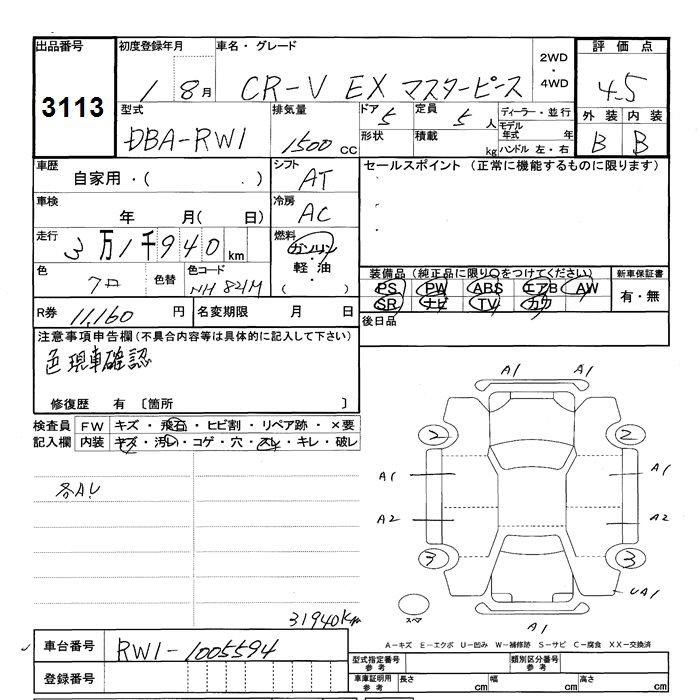 出品番号
3113
初度登録年月
1 8月
車名・グレード
CR-V EX マスターピース
2WD
・
4WD
評価点
4.5
外装 内装
B B
型式
DBA-RW1
排気量
1500 CC
ドア 5
形状
定員 5 人
積載 kg
ディーラー・並行
モデル年式 年
ハンドル 左・右
車歴
自家用・( . )
シフト
AT
セールスポイント (正常に機能するものに限ります)
車検
年 月( 日)
冷房
AC
走行
3万1千940km
燃料
ガソリン
・
軽油
・
( )
色
クロ
色替
色コード
NH 821M
装備品(純正品に限り〇をつけてください)
PS PW ABS エアB AW
SR ナビ TV カワ
新車保証書
有・無
R券 11,160 円
名変期限 月 日
後日品
注意事項申告欄(不具合内容等は具体的に記入して下さい)
色現車確認
修復歴 有 〔箇所 〕
検査員
記入欄
FW キズ・飛石・ヒビ割・リペア跡・×要
内装 キズ・汚レ・コゲ・穴・スレ・キレ・破レ
各AU
31940km
A1 A1
2 2
A1 A1
A2 A2
3 3
UA1
スペア
A1
A-キズ E-エクボ U-凹み W-補修跡 S-サビ C-腐食 XX-交換済
車台番号
RW1-1005594
登録番号
型式指定番号
参考
類別区分番号
参考
車庫証明用
参考
長さ cm
幅 cm
高さ cm